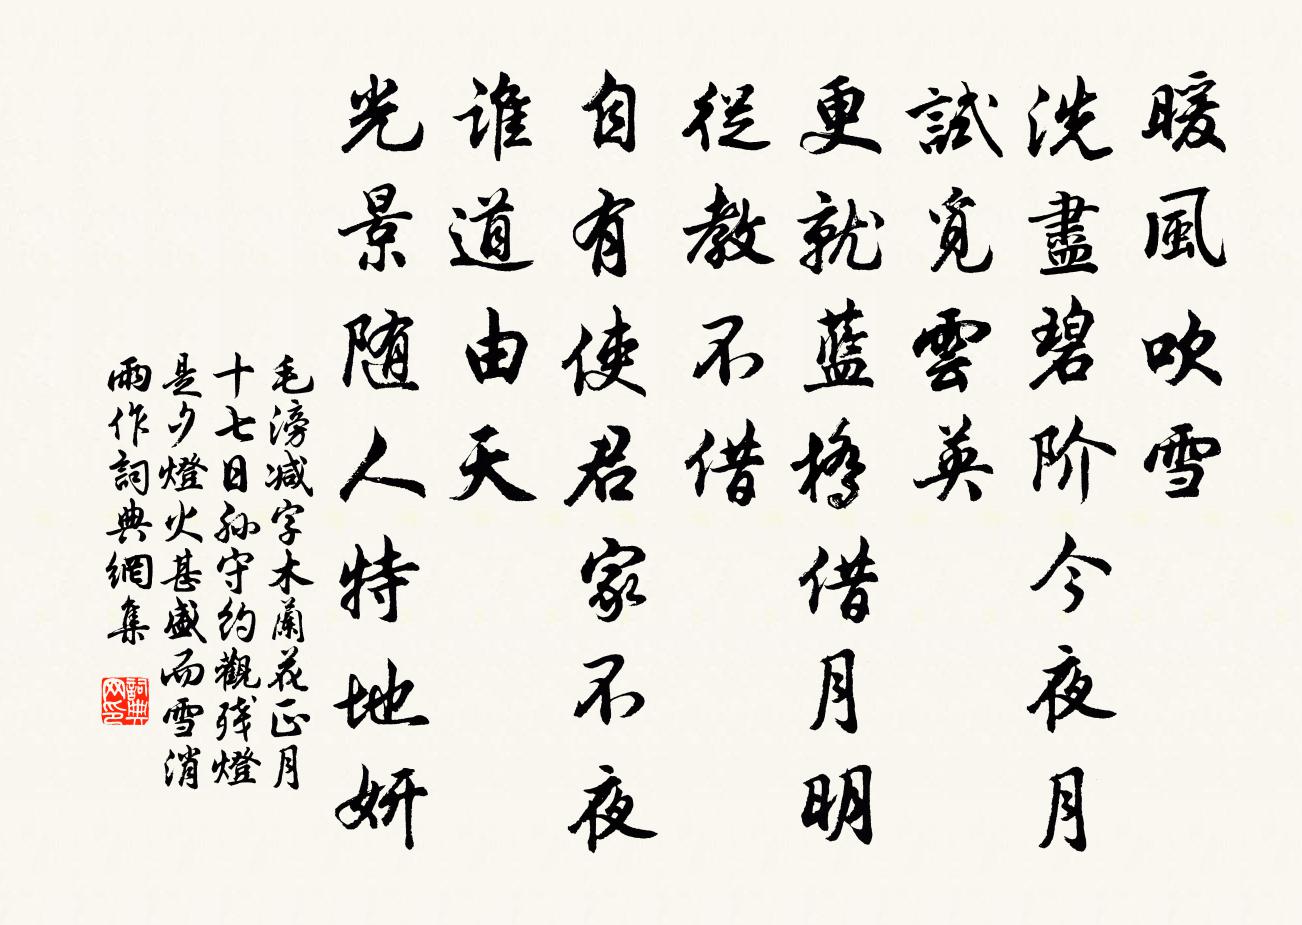 暖風吹雪
洗盡碧阶今夜月
試覓雲英
更就藍橋借月明
從教不借
自有使君家不夜
谁道由天
光景随人特地妍
毛滂减字木蘭花正月
十七日孙守約觀残燈
是夕燈火甚盛而雪消
雨作詞典網集
詞典
网印